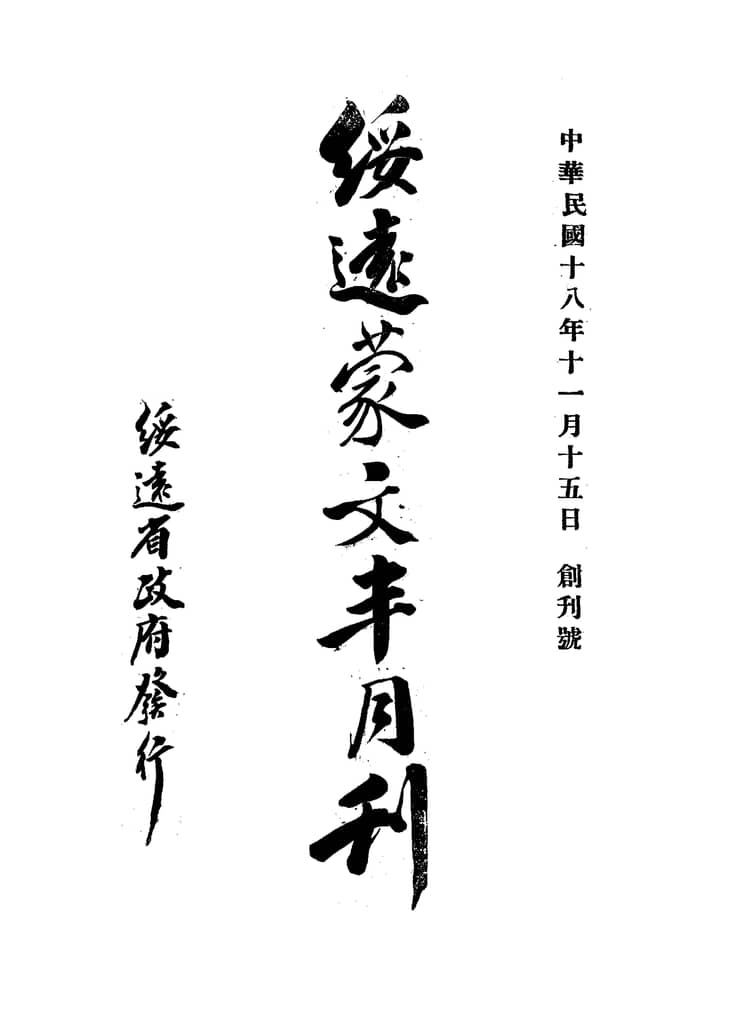 中華民國十八年十一月十五日　創刊號
綏遠蒙文半月刊
綏遠省政府發行